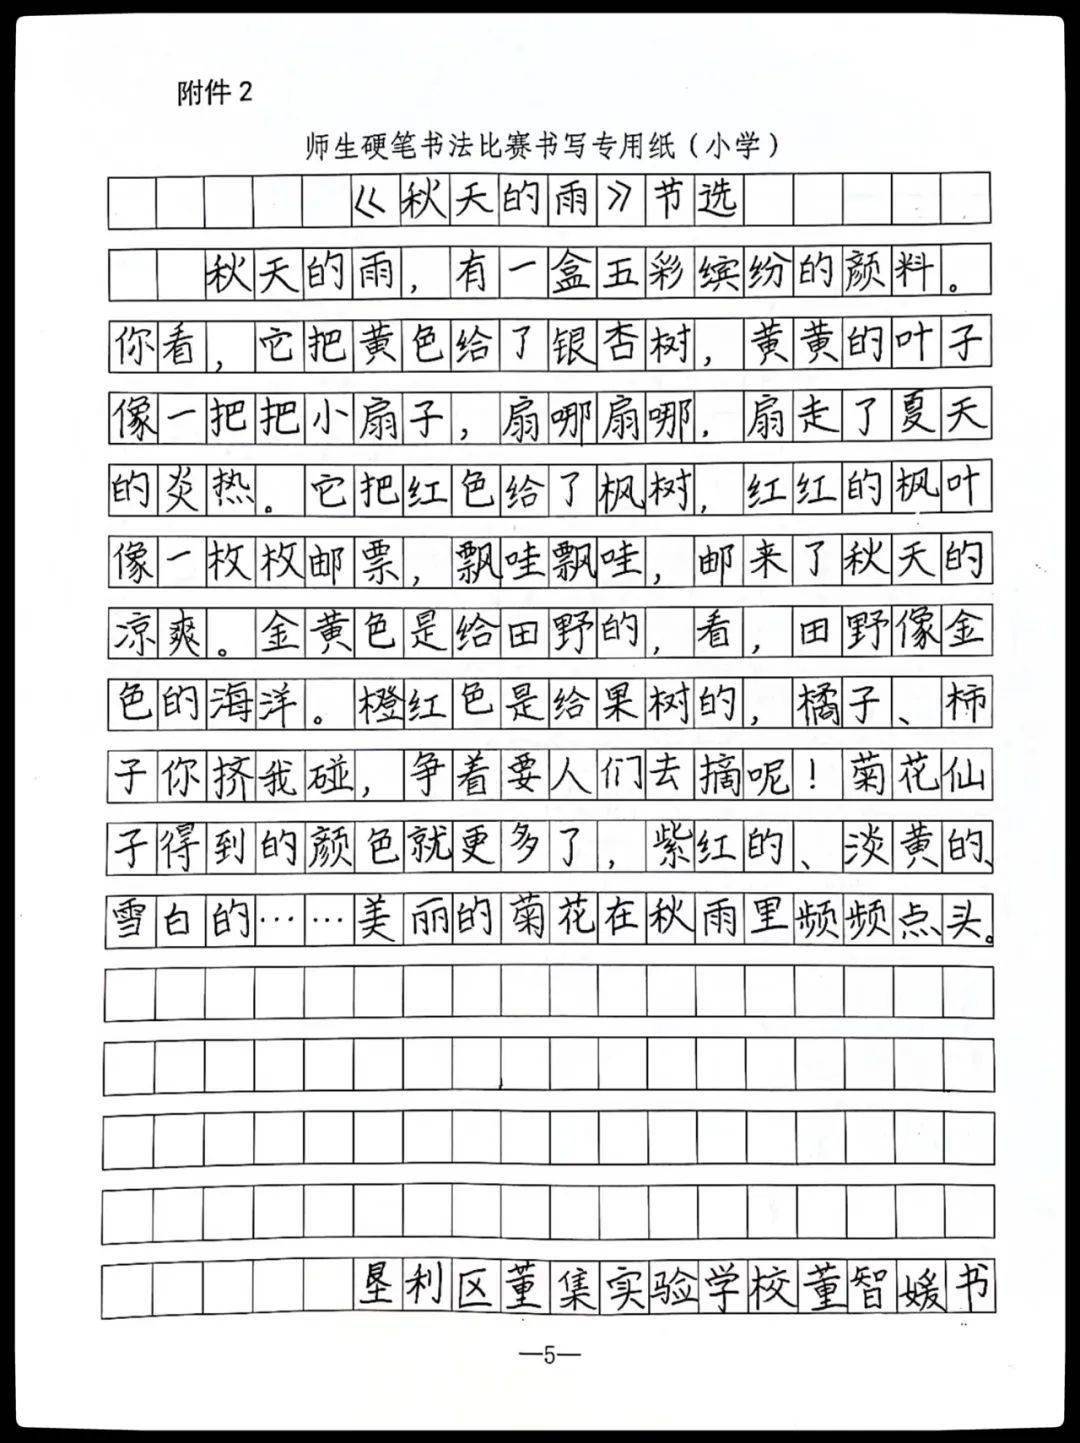 附件2
师生硬笔书法比赛书写专用纸（小学）
《秋天的雨》节选
秋天的雨，有一盒五彩缤纷的颜料。
你看，它把黄色给了银杏树，黄黄的叶子
像一把把小扇子，扇哪扇哪，扇走了夏天
的炎热。它把红色给了枫树，红红的枫叶
像一枚枚邮票，飘哇飘哇，邮来了秋天的
凉爽。金黄色是给田野的，看，田野像金
色的海洋。橙红色是给果树的，橘子、柿
子你挤我碰，争着要人们去摘呢！菊花仙
子得到的颜色就更多了，紫红的、淡黄的、
雪白的……美丽的菊花在秋雨里频频点头。
垦利区董集实验学校董智媛书
—5—